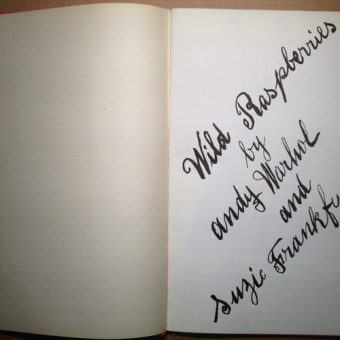 Wild Raspberries
by
andy Warhol
and
Suzie Frankfu